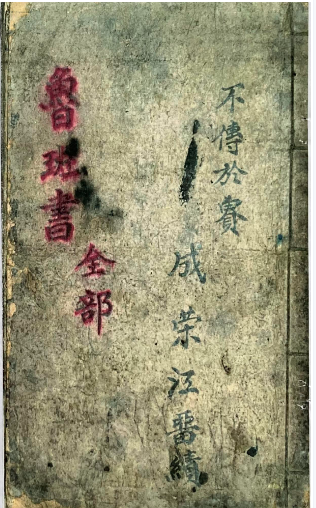 不傳於賽
成荣江番績
魯班書
全部